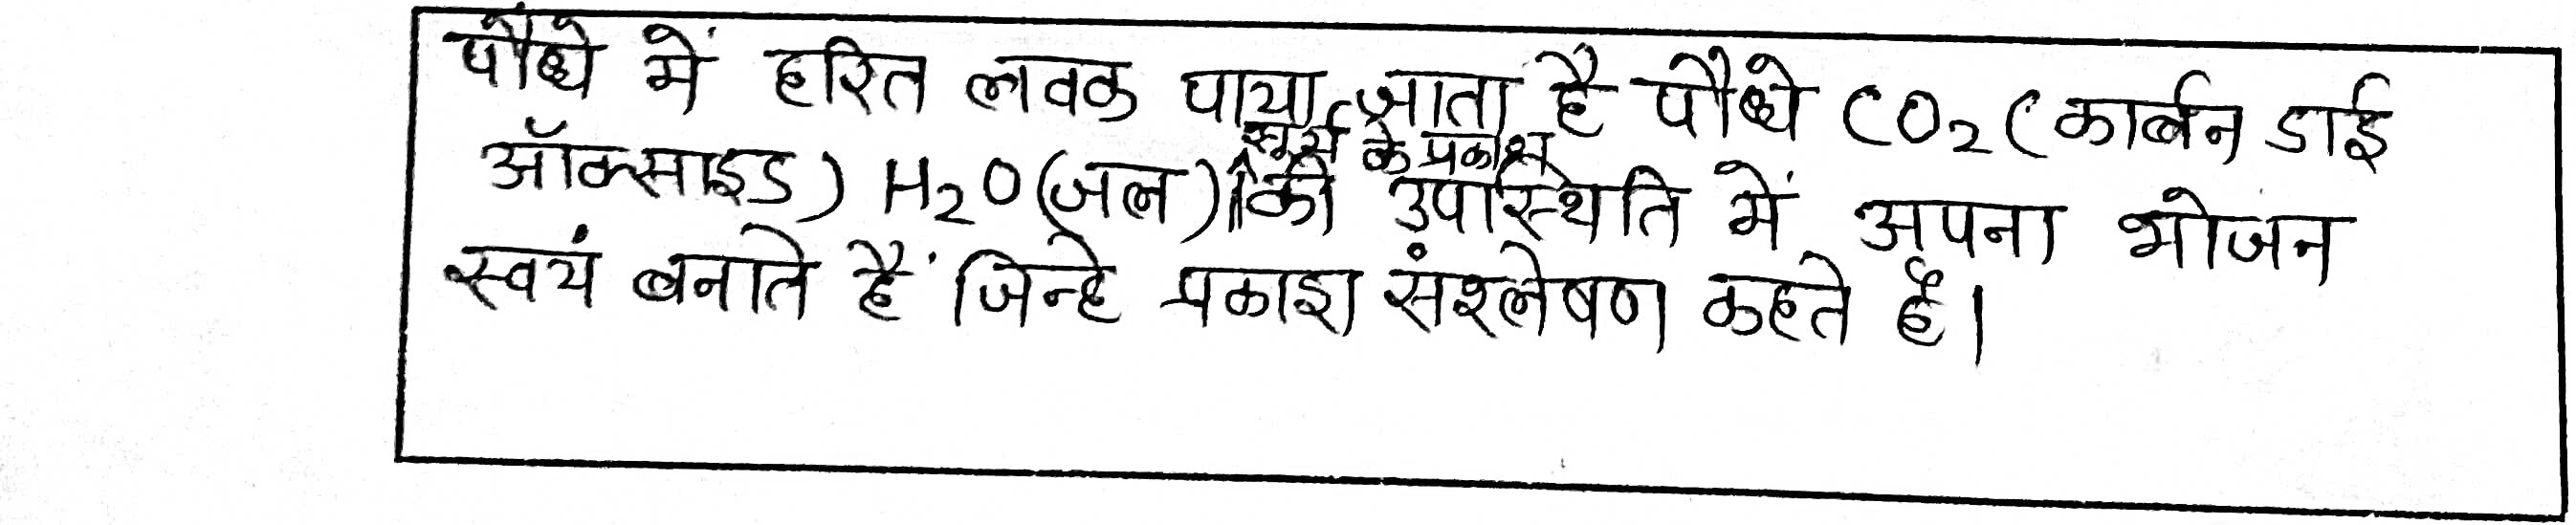 पौधे में हरित लवक पाया जाता है पौधे CO₂ (कार्बन डाई
ऑक्साइड) H₂O (जल) सूर्य के प्रकाश की उपस्थिति में अपना भोजन
स्वयं बनाते हैं जिन्हे प्रकाश संश्लेषण कहते हैं।